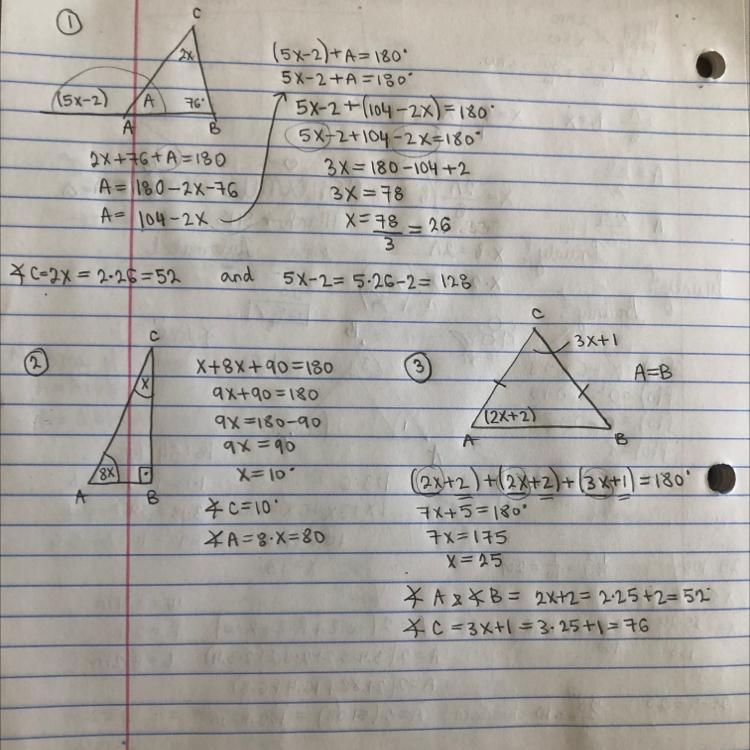 ①
C
2x
(5x-2)
A
76°
A
B
(5x-2)+A=180°
5x-2+A=180°
5x-2+(104-2x)=180°
5x-2+104-2x=180°
3x=180-104+2
3x=78
x=78/3=26
2x+76+A=180
A=180-2x-76
A=104-2x
∡C=2x=2·26=52 and 5x-2=5·26-2=128
②
C
x
8x
A
B
x+8x+90=180
9x+90=180
9x=180-90
9x=90
x=10°
∡C=10°
∡A=8·x=80
③
C
3x+1
A=B
(2x+2)
A
B
(2x+2)+(2x+2)+(3x+1)=180°
7x+5=180°
7x=175
x=25
∡A & ∡B= 2x+2=2·25+2=52°
∡C=3x+1=3·25+1=76